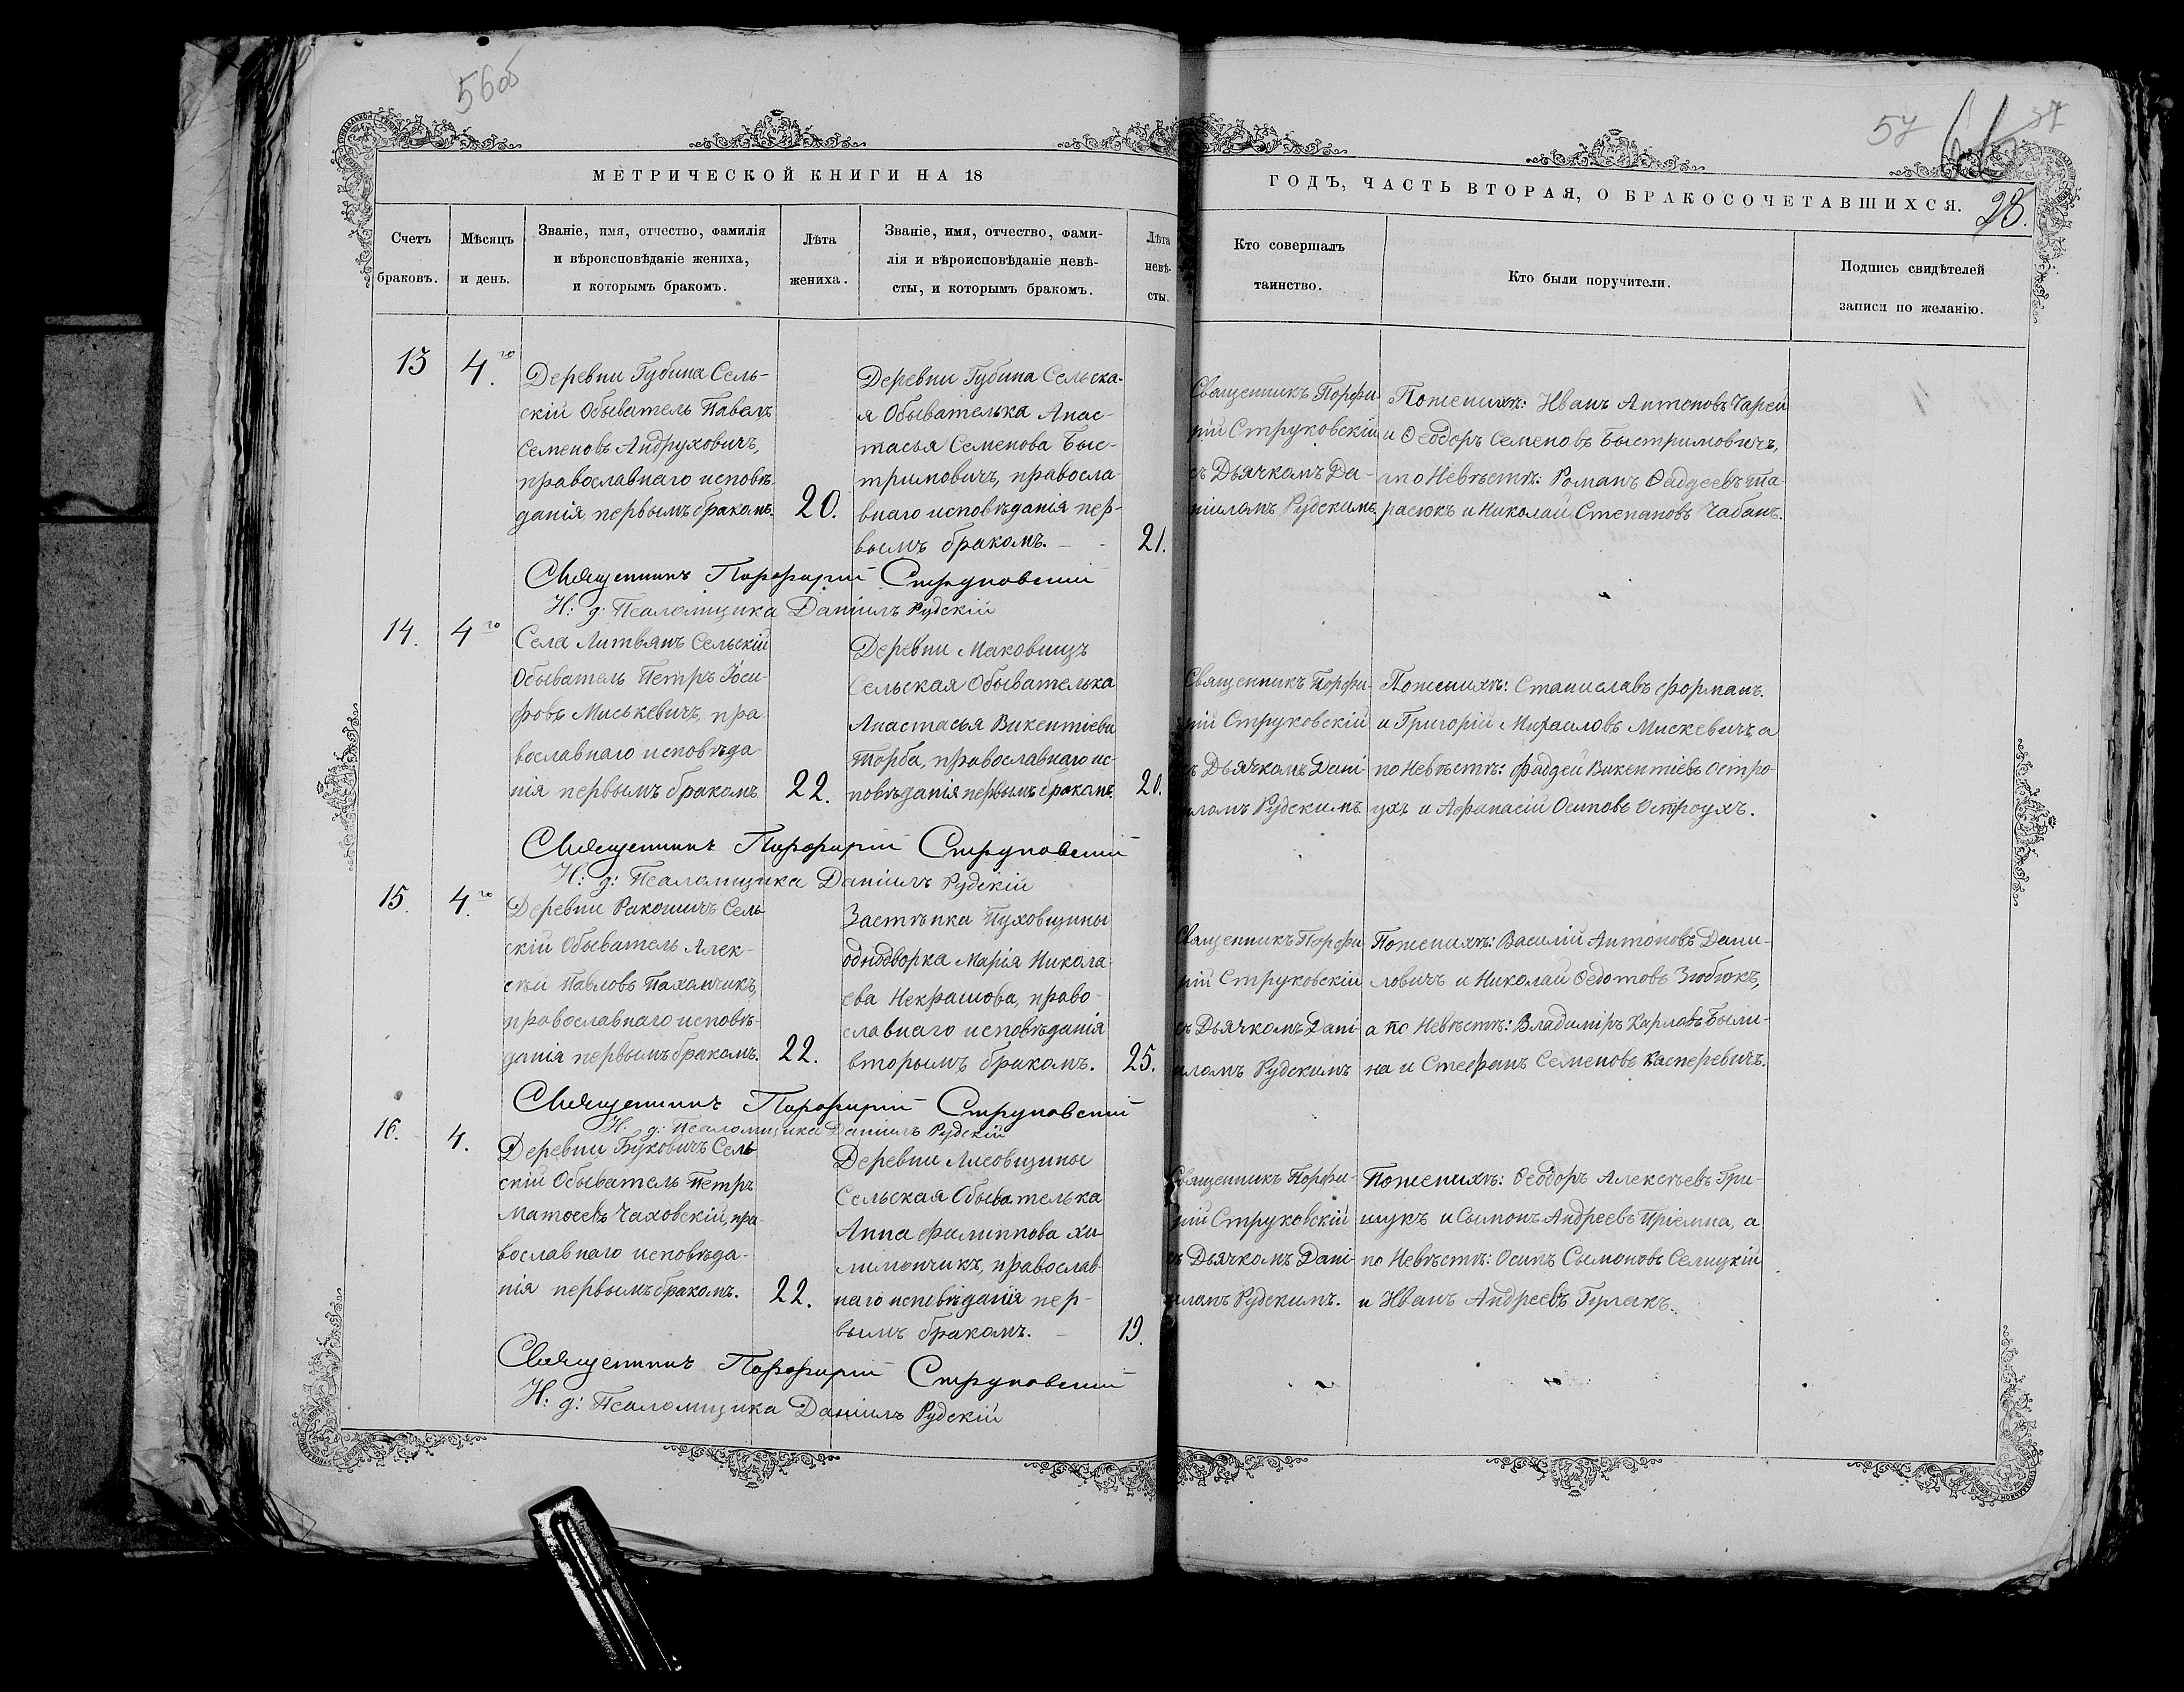 56об
57
61
37
28.
МЕТРИЧЕСКОЙ КНИГИ НА 18
ГОДЪ, ЧАСТЬ ВТОРАЯ, О БРАКОСОЧЕТАВШИХСЯ.
Счетъ
браковъ.
Мѣсяцъ
и день.
Званіе, имя, отчество, фамилія
и вѣроисповѣданіе жениха,
и которымъ бракомъ.
Лѣта
жениха.
Званіе, имя, отчество, фами-
лія и вѣроисповѣданіе невѣ-
сты, и которымъ бракомъ.
Лѣта
невѣ-
сты.
Кто совершалъ
таинство.
Кто были поручители.
Подпись свидѣтелей
записи по желанію.
13
4.го
Деревни Губина Сель-
скій Обыватель Павелъ
Семеновъ Андруховичъ,
православнаго исповѣ-
данія, первымъ бракомъ.
20.
Деревни Губина Сельска-
я Обывателька Анас-
тасья Семенова Быс-
тримовичъ, правосла-
внаго исповѣданія пер-
вымъ бракомъ.
21.
Священникъ Порфи
рій Струковскій
съ Дьячкомъ Да-
ніиломъ Рудскимъ.
По женихѣ: Иванъ Антоновъ Чарей
и Ѳеодоръ Семеновъ Быстримовичъ,
а по Невѣстѣ: Романъ Ѳаддеевъ Та-
расюкъ и Николай Степановъ Чабанъ.
Священникъ Порфирій Струковскій
И: д: Псаломщика Даніилъ Рудскій
14.
4го
Села Литвянъ Сельскій
Обыватель Петръ Іоси-
фовъ Миськевичъ, пра
вославнаго исповѣда
нія первымъ бракомъ
22.
Деревни Маковищъ
Сельская Обывателька
Анастасья Викентіева
Торба, православнаго ис-
повѣданія первымъ бракомъ.
20.
Священникъ Порфи-
рій Струковскій
съ Дьячкомъ Дані-
иломъ Рудскимъ.
По женихѣ: Станиславъ Форманъ.
и Григорій Михаиловъ Мискевичъ, а
по Невѣстѣ: Фаддей Викентіевъ Остро-
ухъ и Афанасій Осиповъ Остроухъ.
Священникъ Порфирій Струковскій
И: д: Псаломщика Даніилъ Рудскій
15.
4.го
Деревни Ракошичъ Сель
скій Обыватель Алек-
сѣй Павловъ Пахомчикъ,
православнаго исповѣ-
данія первымъ бракомъ.
22.
Застѣнка Пуховщины
однодворка Марія Никола-
ева Некрашова, право-
славнаго исповѣданія
вторымъ бракомъ.
25.
Священникъ Порфи
рій Струковскій
съ Дьячкомъ Дані
иломъ Рудскимъ
По женихѣ: Василій Антоновъ Дани-
ловичъ и Николай Ѳедотовъ Зюбюкъ,
а по Невѣстѣ: Владиміръ Карловъ Были-
на и Стефанъ Семеновъ Касперевичъ.
Священникъ Порфирій Струковскій
И: д: Псаломщика Даніилъ Рудскій
16.
4.
Деревни Буковичъ Сель
скій Обыватель Петръ
Матѳеевъ Чаховскій, пра-
вославнаго исповѣда-
нія первымъ бракомъ.
22.
Деревни Лисовщины
Сельская Обывателька
Анна Филиппова Хи
лимончикъ, православ-
наго исповѣданія пер-
вымъ бракомъ.
19.
Священникъ Порфи-
рій Струковскій
съ Дьячкомъ Дані-
иломъ Рудскимъ.
По женихѣ: Ѳеодоръ Алексѣевъ Гри-
шукъ и Сымонъ Андреевъ Пріемка, а
по Невѣстѣ: Осипъ Сымоновъ Селицкій
и Иванъ Андреевъ Гурлакъ.
Священникъ Порфирій Струковскій
И: д: Псаломщика Даніилъ Рудскій